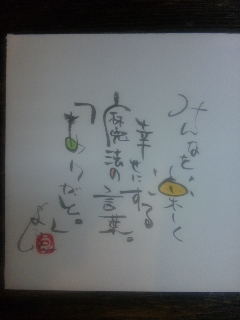 みんなを楽しく
幸せにする
魔法の言葉。
ありがと。